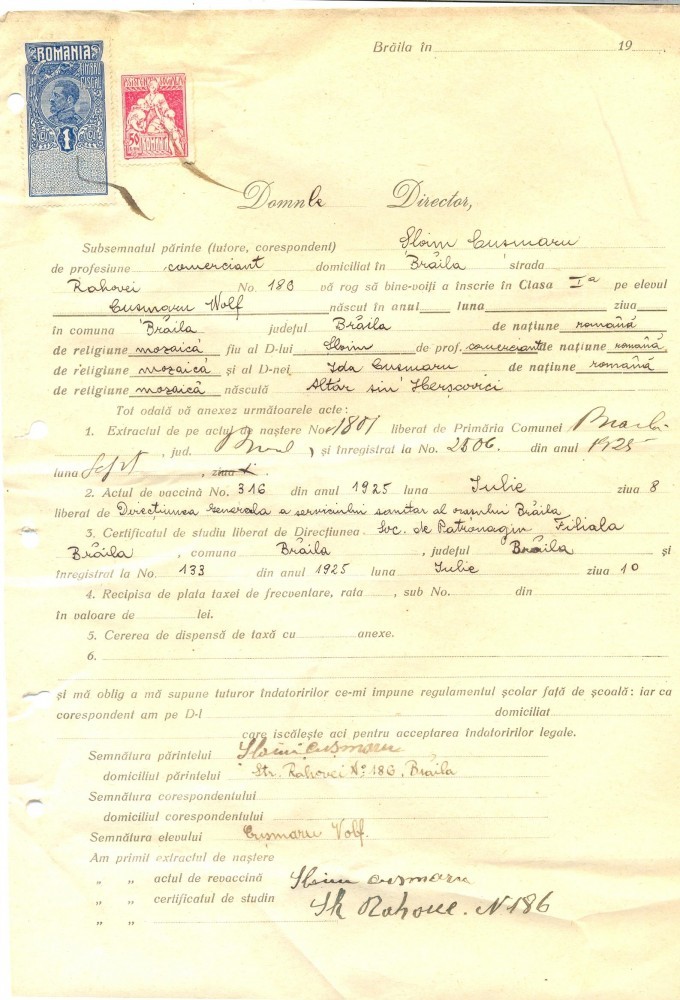 Brăila în 19
ROMANIA
TIMBRU FISCAL
1
50
Domnle Director,
Subsemnatul părinte (tutore, corespondent) Sloim Cusmaru
de profesiune comerciant domiciliat în Brăila strada
Rahovei No. 180 vă rog să bine-voiți a înscrie în Clasa Iª pe elevul
Cusmaru Wolf născut în anul luna ziua
în comuna Brăila județul Brăila de națiune română
de religiune mozaică fiu al D-lui Sloim de prof. comerciant de națiune română
de religiune mozaică și al D-nei Ida Cusmaru de națiune română
de religiune mozaică născută Altăr sin Herscovici
Tot odată vă anexez următoarele acte:
1. Extractul de pe actul de naștere No. 1801 liberat de Primăria Comunei Braila
, jud. , și înregistrat la No. 2506. din anul 1925
luna Sept , ziua
2. Actul de vaccină No. 316 din anul 1925 luna Iulie ziua 8
liberat de Direcțiunea Generala a serviciului sanitar al orașului Brăila
3. Certificatul de studiu liberat de Direcțiunea Soc. de Patronagiu Filiala
Brăila , comuna Brăila , județul Brăila și
înregistrat la No. 133 din anul 1925 luna Iulie ziua 10
4. Recipisa de plata taxei de frecventare, rata , sub No. din
în valoare de lei.
5. Cererea de dispensă de taxă cu anexe.
6.
și mă oblig a mă supune tuturor îndatoririlor ce-mi impune regulamentul școlar față de școală: iar ca
corespondent am pe D-l domiciliat
care iscălește aci pentru acceptarea îndatoririlor legale.
Semnătura părintelui Sloim Cușmaru
domiciliul părintelui Str. Rahovei No 186, Brăila
Semnătura corespondentului
domiciliul corespondentului
Semnătura elevului Cușmaru Volf.
Am primit extractul de naștere
„ „ actul de revaccină Sloim cusmaru
„ „ certificatul de studin Sk Rahove. N 186
„ „